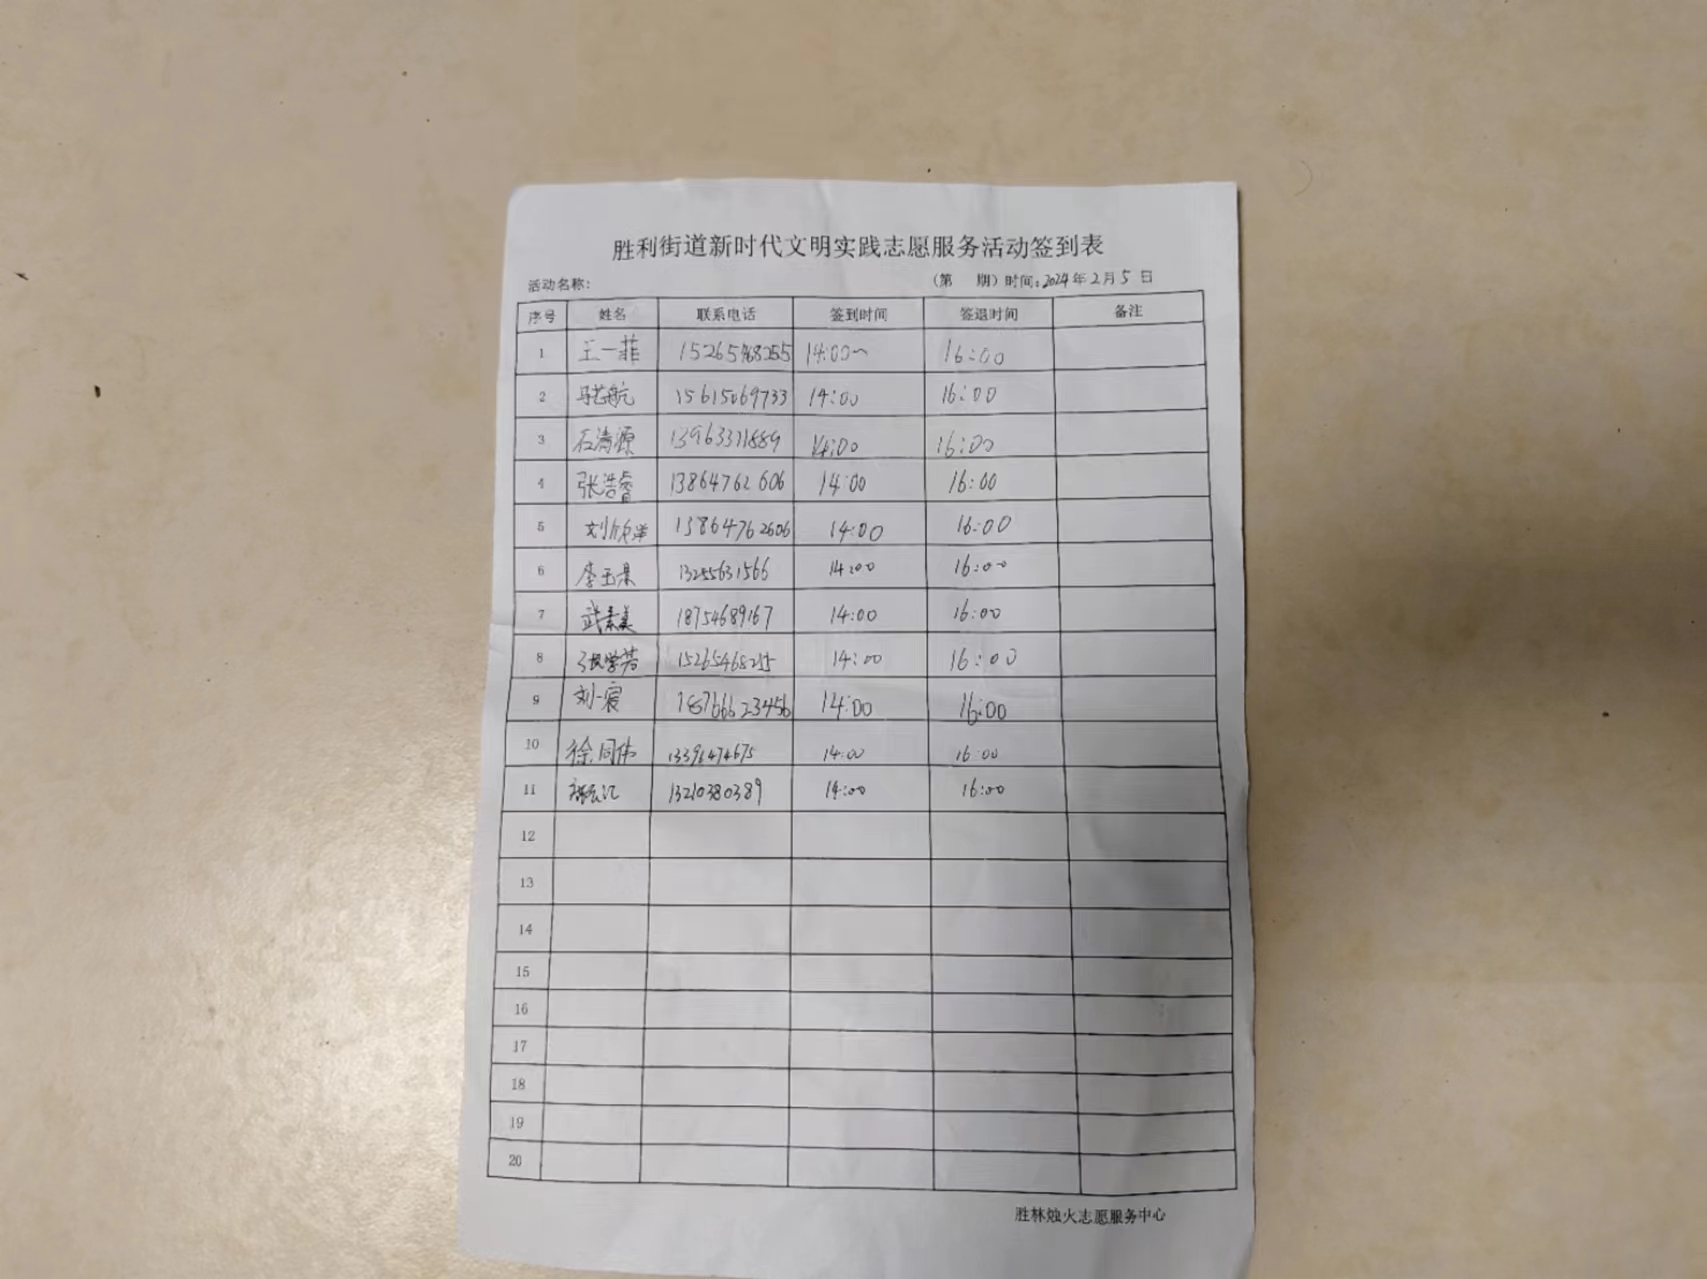 胜利街道新时代文明实践志愿服务活动签到表
活动名称: (第 期) 时间: 2024年2月5日
序号 姓名 联系电话 签到时间 签退时间 备注
1 王一菲 15265468255 14:00 16:00
2 马艺航 15615069733 14:00 16:00
3 石清源 13963311889 14:00 16:00
4 张浩睿 13864762606 14:00 16:00
5 刘欣洋 13864762606 14:00 16:00
6 李玉果 13255631566 14:00 16:00
7 武素美 18754689167 14:00 16:00
8 张学芳 15265468255 14:00 16:00
9 刘一宸 18766623456 14:00 16:00
10 徐同伟 14:00 16:00
11 13210380389 14:00 16:00
12
13
14
15
16
17
18
19
20
胜林烛火志愿服务中心